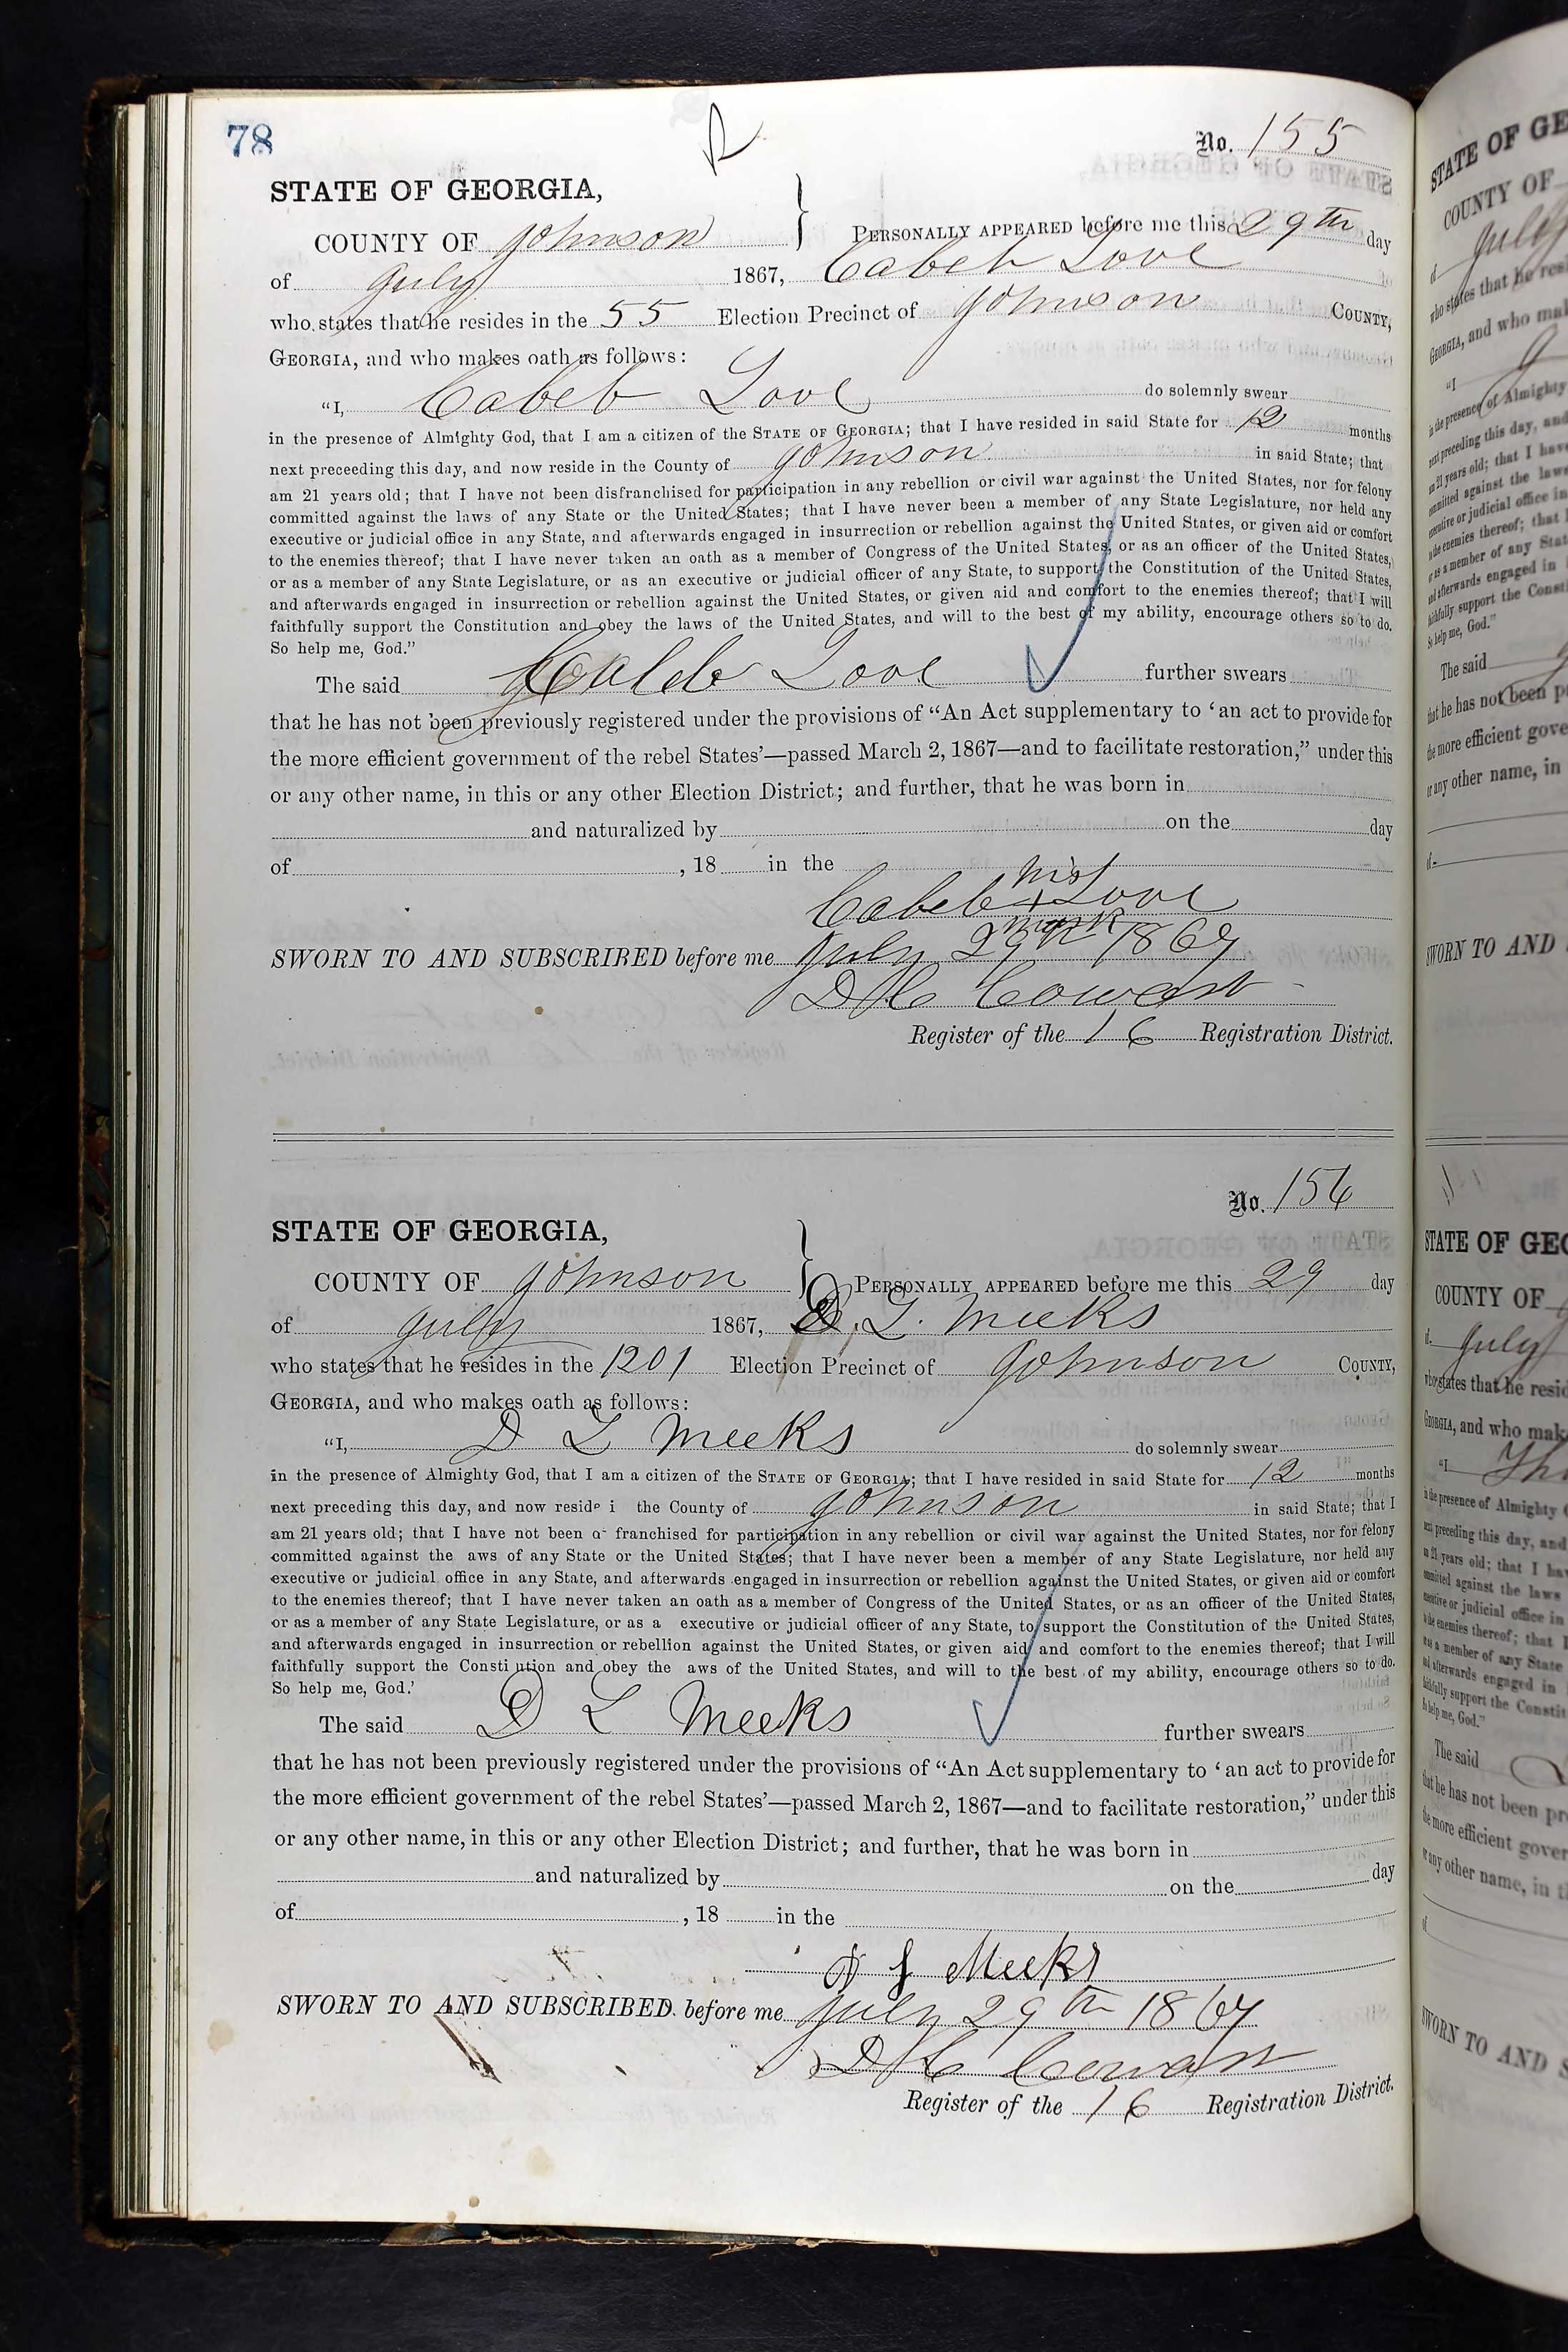 78
R
No. 155
STATE OF GEORGIA,
COUNTY OF Johnson } PERSONALLY APPEARED before me this 29th day
of July 1867, Cabeb Love
who states that he resides in the 55 Election Precinct of Johnson COUNTY,
GEORGIA, and who makes oath as follows:
"I, Cabeb Love do solemnly swear
in the presence of Almighty God, that I am a citizen of the STATE OF GEORGIA; that I have resided in said State for 12 months
next preceeding this day, and now reside in the County of Johnson in said State; that
am 21 years old; that I have not been disfranchised for participation in any rebellion or civil war against the United States, nor for felony
committed against the laws of any State or the United States; that I have never been a member of any State Legislature, nor held any
executive or judicial office in any State, and afterwards engaged in insurrection or rebellion against the United States, or given aid or comfort
to the enemies thereof; that I have never taken an oath as a member of Congress of the United States, or as an officer of the United States,
or as a member of any State Legislature, or as an executive or judicial officer of any State, to support the Constitution of the United States,
and afterwards engaged in insurrection or rebellion against the United States, or given aid and comfort to the enemies thereof; that I will
faithfully support the Constitution and obey the laws of the United States, and will to the best of my ability, encourage others so to do.
So help me, God."
The said Caleb Love further swears
that he has not been previously registered under the provisions of "An Act supplementary to 'an act to provide for
the more efficient government of the rebel States'—passed March 2, 1867—and to facilitate restoration," under this
or any other name, in this or any other Election District; and further, that he was born in
and naturalized by on the day
of , 18 in the
his
Cabeb + Love
mark
SWORN TO AND SUBSCRIBED before me July 29th 1867
D H C Cowart
Register of the 16 Registration District.
No. 156
STATE OF GEORGIA,
COUNTY OF Johnson } PERSONALLY APPEARED before me this 29 day
of July 1867, D. L. Meeks
who states that he resides in the 1201 Election Precinct of Johnson COUNTY,
GEORGIA, and who makes oath as follows:
"I, D L Meeks do solemnly swear
in the presence of Almighty God, that I am a citizen of the STATE OF GEORGIA; that I have resided in said State for 12 months
next preceding this day, and now reside i the County of Johnson in said State; that I
am 21 years old; that I have not been franchised for participation in any rebellion or civil war against the United States, nor for felony
committed against the aws of any State or the United States; that I have never been a member of any State Legislature, nor held any
executive or judicial office in any State, and afterwards engaged in insurrection or rebellion against the United States, or given aid or comfort
to the enemies thereof; that I have never taken an oath as a member of Congress of the United States, or as an officer of the United States,
or as a member of any State Legislature, or as a executive or judicial officer of any State, to support the Constitution of the United States,
and afterwards engaged in insurrection or rebellion against the United States, or given aid and comfort to the enemies thereof; that I will
faithfully support the Consti ution and obey the aws of the United States, and will to the best of my ability, encourage others so to do.
So help me, God.'
The said D L Meeks further swears
that he has not been previously registered under the provisions of "An Act supplementary to 'an act to provide for
the more efficient government of the rebel States'—passed March 2, 1867—and to facilitate restoration," under this
or any other name, in this or any other Election District; and further, that he was born in
and naturalized by on the day
of , 18 in the
D L Meeks
SWORN TO AND SUBSCRIBED before me July 29th 1867
D H C Cowart
Register of the 16 Registration District.